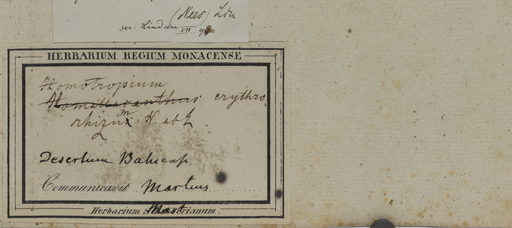 (Nees) Lin
scr. Lindau VII. 95
HERBARIUM REGIUM MONACENSE
Homotropium
erythro
rhizum N. ab E.
Desertum Bahiense
Communicavit Martius
Herbarium Martianum.